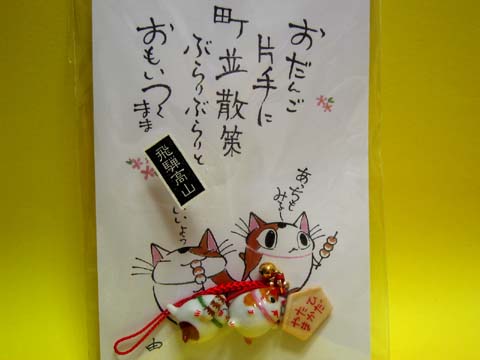 おだんご
片手に
町並散策
ぶらりぶらりと
おもいつくまま
飛騨高山
あっちも
みよー
いいよう
ひだ
たかやま
由